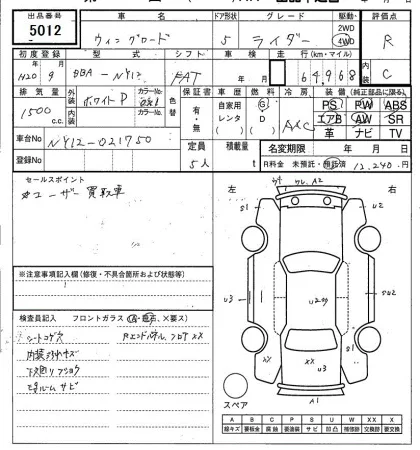 出品番号 車名 ドア形状 グレード 駆動 評価点
5012 ウィングロード 5 ライダー 2WD 4WD R
初度登録 型式 シフト 車検 走行 (km・マイル) 内装
H20年9月 DBA-NY12 FAT 年 月 64968 C
排気量 外装色 カラーNo. 内装色 カラーNo. 色替 保証書 車歴 燃料 冷房 装備 (純正部品に限る)
1500 c.c. ホワイトP 有・無 自家用 レンタ G D AAC PS PW ABS
エアB AW SR
革 ナビ TV
車台No NY12-021750 定員 積載量 名変期限 年 月 日
登録No 5人 t R料金 未預託・預託済 12,240円
セールスポイント
※ユーザー買取車
左 右
※注意事項記入欄(修復・不具合箇所および状態等)
検査員記入 フロントガラス (A・飛石、×要ス)
シートコゲ穴 Rエンドパネル、フロアXX
内装汚れキズ
下廻りサビ
U2
S1
U3
XX
U3
A1
スペア
A B C P S U W X XX
線キズ 要板金 腐食 要塗装 サビ 凹凸 補修跡 交換跡 要交換